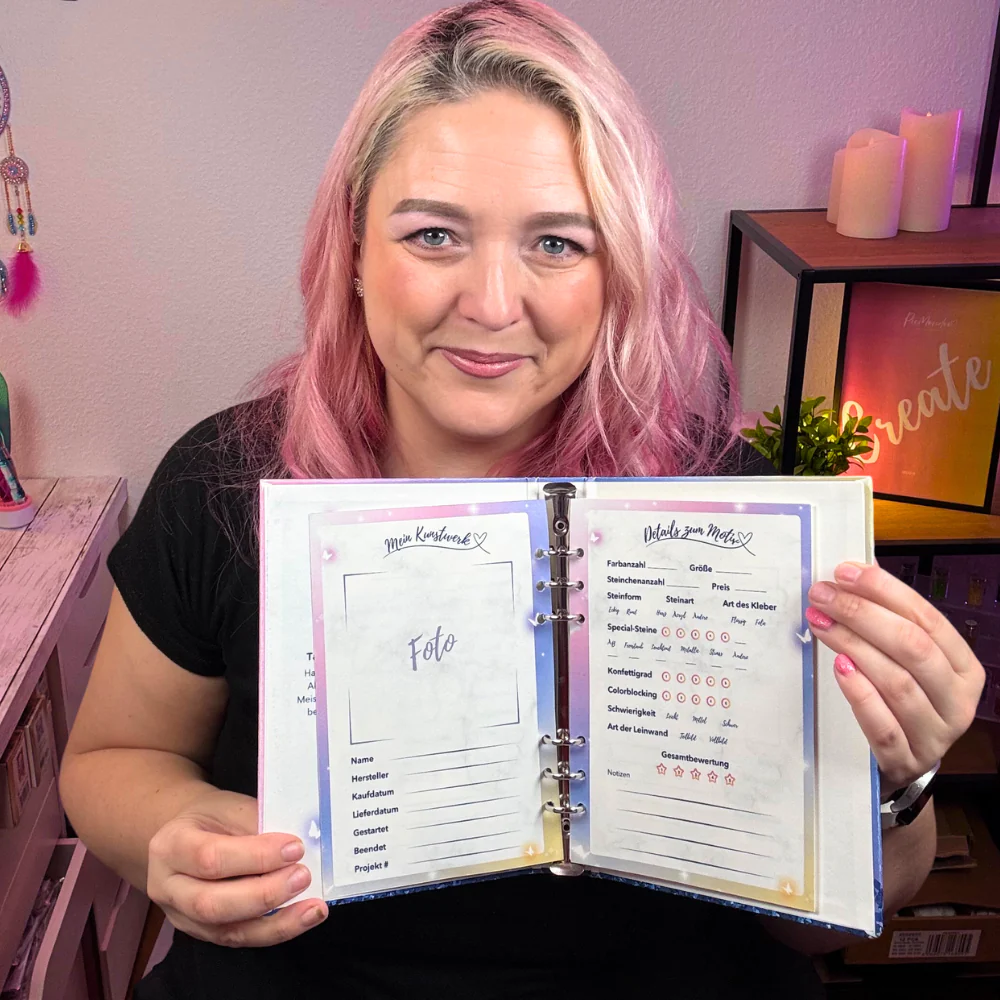 Mein Kunstwerk
Foto
Name
Hersteller
Kaufdatum
Lieferdatum
Gestartet
Beendet
Projekt #
Details zum Motiv
Farbanzahl Größe
Steinchenanzahl Preis
Steinform Steinart Art des Kleber
Eckig Rund Harz Acryl Andere Flüssig Folie
Special-Steine
AB Feenstaub Leuchtend Metallic Strass Andere
Konfettigrad
Colorblocking
Schwierigkeit Leicht Mittel Schwer
Art der Leinwand Teilbild Vollbild
Gesamtbewertung
Notizen
Create